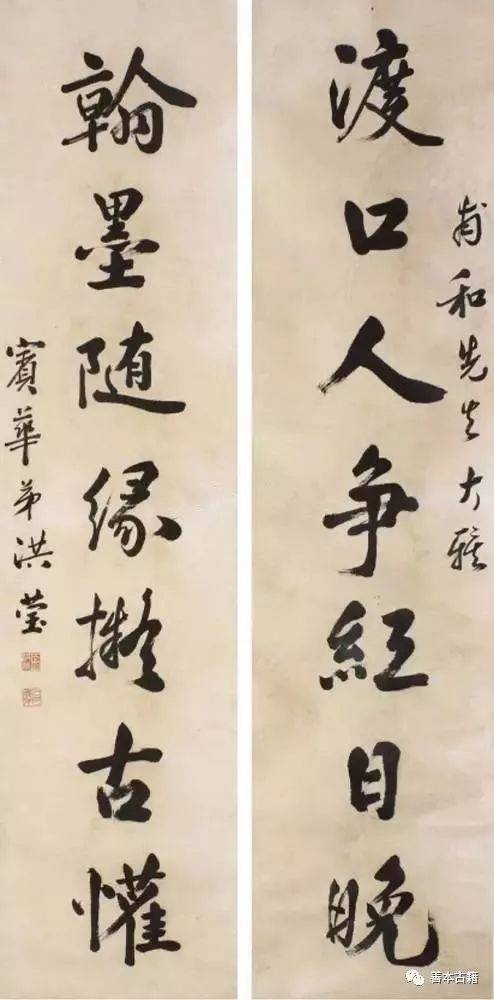 甫和先生大雅
渡口人争紅日晚
翰墨随緣擬古懽
賓華弟洪瑩
善本古籍